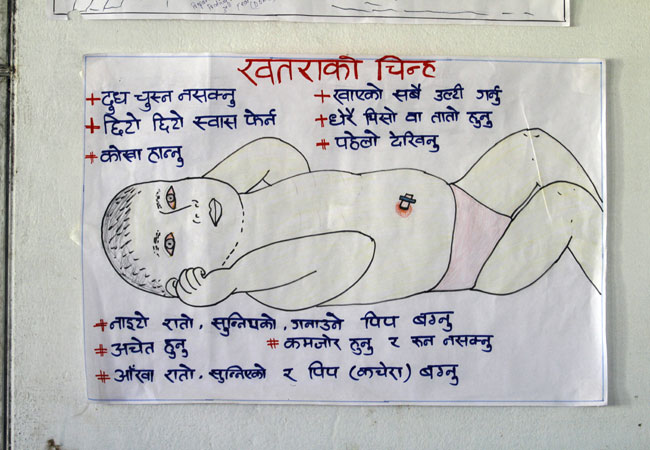 खतराको चिन्ह
+ दुध चुस्न नसक्नु
+ छिटो छिटो स्वास फेर्न
+ कोखा हान्नु
+ खाएको सबै उल्टी गर्नु
+ धेरै चिसो वा तातो हुनु
+ पहेलो देखिनु
+ नाइटो रातो, सुन्निएको, गनाउने पिप बग्नु
# अचेत हुनु
# कमजोर हुनु र रुन नसक्नु
# आँखा रातो, सुन्निएको र पिप (कचेरा) बग्नु